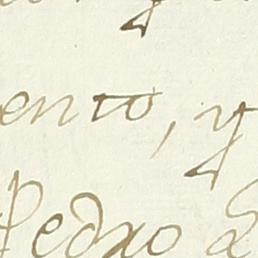 ento, y
Pedro